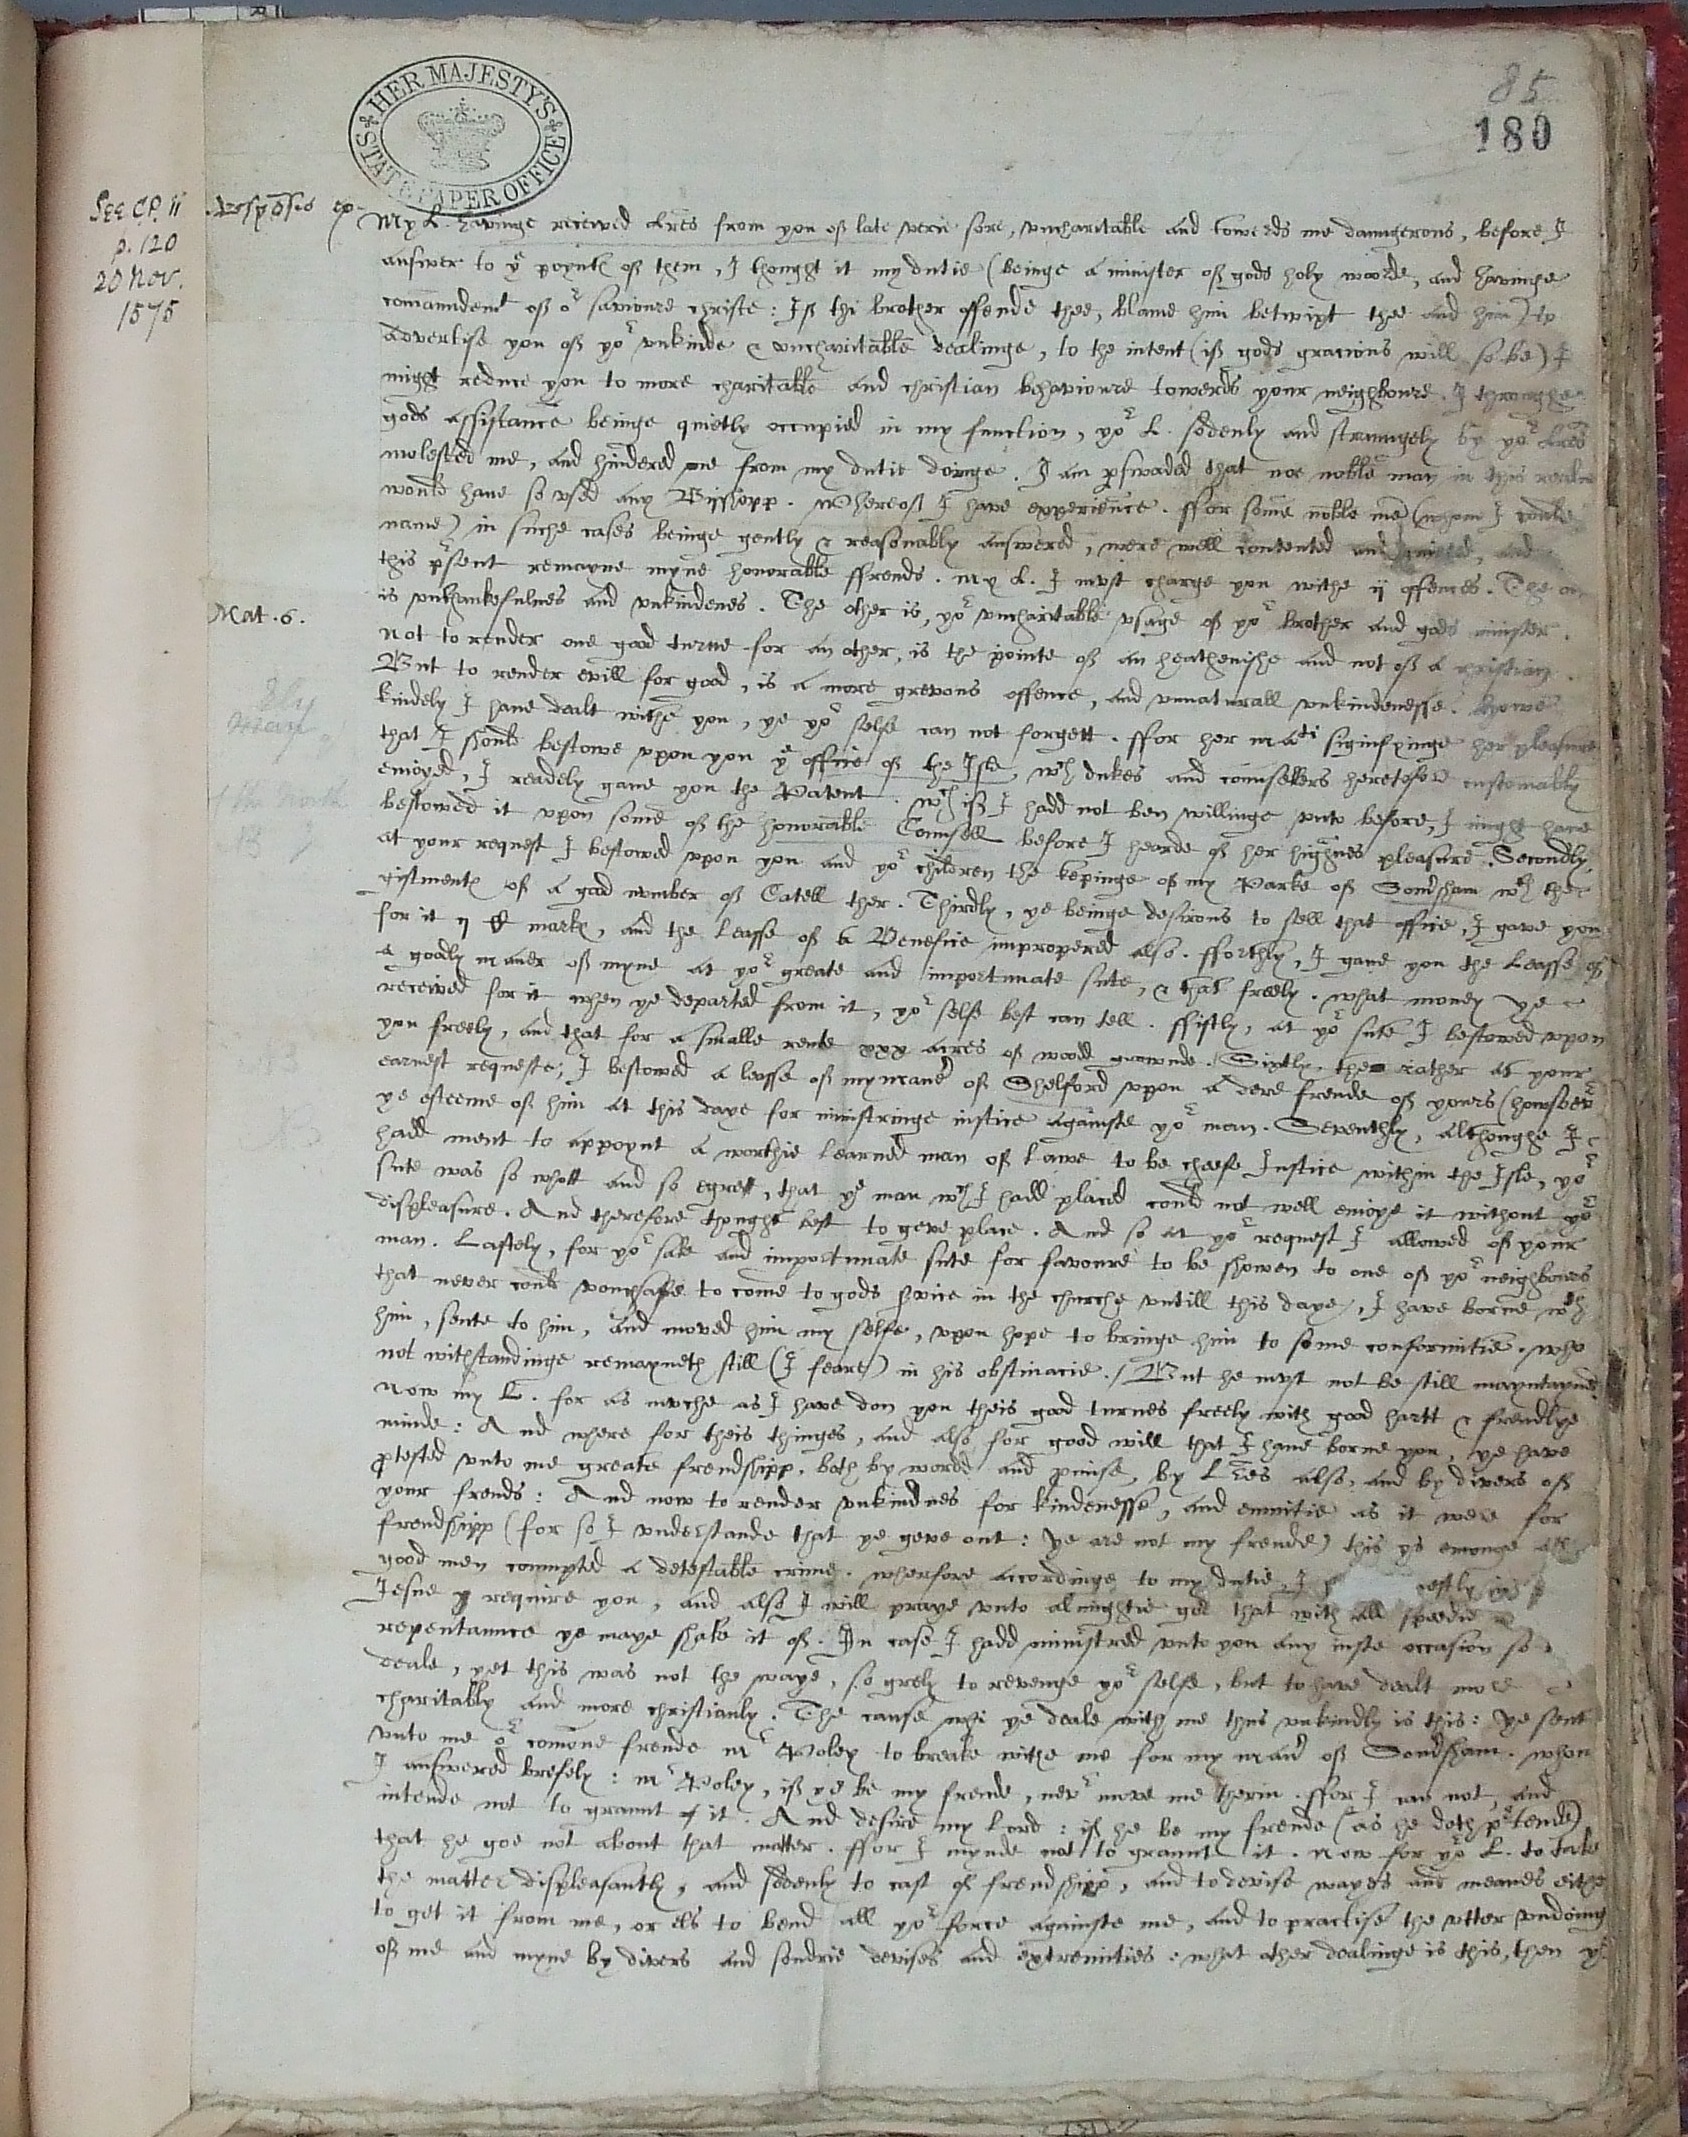 85
180
HER MAJESTY'S
STATE PAPER OFFICE
See C.P. II
p. 120
20 Nov.
1575
My L. havinge received lres from you of late verie sore, vncharitable and towerds me daungerous, before I
answer to ye poyntes of them, I thought it my dutie (beinge a minister of gods holy woorde, and havinge
comaundemt of or savioure christe: If thi brother offende thee, blame him betwixt thee and him) to
advertise you of yor vnkinde & vncharitable dealinge, to the intent (if gods gracious will so be) I
might reduce you to more charitable and christian behavioure towerds your neighboure. I throughe
gods assistance beinge quietly occupied in my function, yor L. sodenly and straungely by yor lres
molested me, and hindered me from my dutie doinge. I am pswaded that noe noble man in this realme
would have so vsed any Bisshopp. Whereof I have experience. ffor some noble men (whom I coulde
name) in suche cases beinge gently & reasonably answered, were well contented and and
this psent remayne myne honorable ffrends. My L. I must charge you withe ij offences. The one
is vnthankefulnes and vnkindenes. The other is, yor vncharitable vsage of yor brother and gods minister.
Mat. 6.
Not to render one good turne for an other, is the pointe of an heathenishe and not of a christian.
But to render evill for good, is a more grevous offence, and vnnaturall vnkindenesse. Howe
kindely I have dealt withe you, ye yor selfe can not forgett. ffor her matie signifyinge her pleasure
that I should bestowe vpon you ye office of the Isle, wch dukes and counsellers heretofore customably
enioyed, I readely gave you the Patent. Wch if I hadd not ben willinge vnto before, I might have
bestowed it vpon some of the honorable Counsell before I hearde of her highnes pleasure. Secondly,
at your request I bestowed vpon you and yor children the kepinge of my Parke of Somsham wth the
gistmente of a good number of Catell ther. Thirdly, ye beinge desirous to sell that office, I gave you
for it ij C markes, and the leasse of a Benefice impropered also. ffourthly, I gave you the Leasse of
a goodly maner of myne at yor greate and importunate sute, & that freely. What money ye
received for it when ye departed from it, yor selfe best can tell. ffiftly, at yor sute I bestowed vpon
you freely, and that for a smalle rente xxx acres of woodd grownde. Sixtly, the rather at your
earnest requeste, I bestowed a leasse of my maner of Shelford vpon a dere frende of yours (howsoevr
ye esteeme of him at this daye for ministringe iustice againste yor man. Seventhly, althoughe I
hadd ment to appoynt a worthie learned man of Lawe to be cheefe Iustice within the Isle, yor
sute was so whott and so egrett, that ye man wch I hadd placed could not well enioye it without yor
displeasure. And therefore thought best to geve place. And so at yor request I allowed of your
man. Lastely, for yor sake and importunate sute for favoure to be showen to one of yor neighbours
that never could vouchsafe to come to gods service in the churche vntill this daye, I have borne wth
him, sente to him, and moved him my selfe, vpon hope to bringe him to some conformitie. Who
not withstandinge remayneth still (I feare) in his obstinacie. / But he must not be still mayntayned.
Now my L. for as muche as I have don you theis good turnes freely with good hartt & frendlye
minde: And where for theis thinges, and also for good will that I have borne you, ye have
ptested vnto me greate frendshipp, both by worde and pmise, by Lres also, and by divers of
your frends: And now to render vnkindnes for kindenesse, and enmitie as it were for
frendshipp (for so I vnderstande that ye geve out: ye are not my frende) this ys emonge all
good men compted a detestable crime. Wherfore accordinge to my dutie, I
Iesue require you, and also I will praye vnto almightie god that with all speedie
repentaunce ye maye shake it of. In case I hadd ministred vnto you any iuste occasion so
deale, yet this was not the waye, so grely to revenge yor selfe, but to have dealt more
charitably and more christianly. The cause whi ye deale with me thus vnkindly is this: ye sent
vnto me or comone frende Mr Poley to breake withe me for my manr of Somsham. Whom
I answered brefely: Mr Poley, if ye be my frende, nevr move me therin. ffor I can not, and
intende not to graunt it. And desire my Lord: if he be my frende (as he doth ptende)
that he goe not about that matter. ffor I mynde not to graunt it. Now for yor L. to take
the matter displeasantly, and sodenly to cast of frendshipp, and to devise wayes and meanes eithe
to get it from me, or els to bend all yor force againste me, and to practise the vtter vndoing
of me and myne by divers and sondrie devises and extremities: what other dealinge is this, then ye